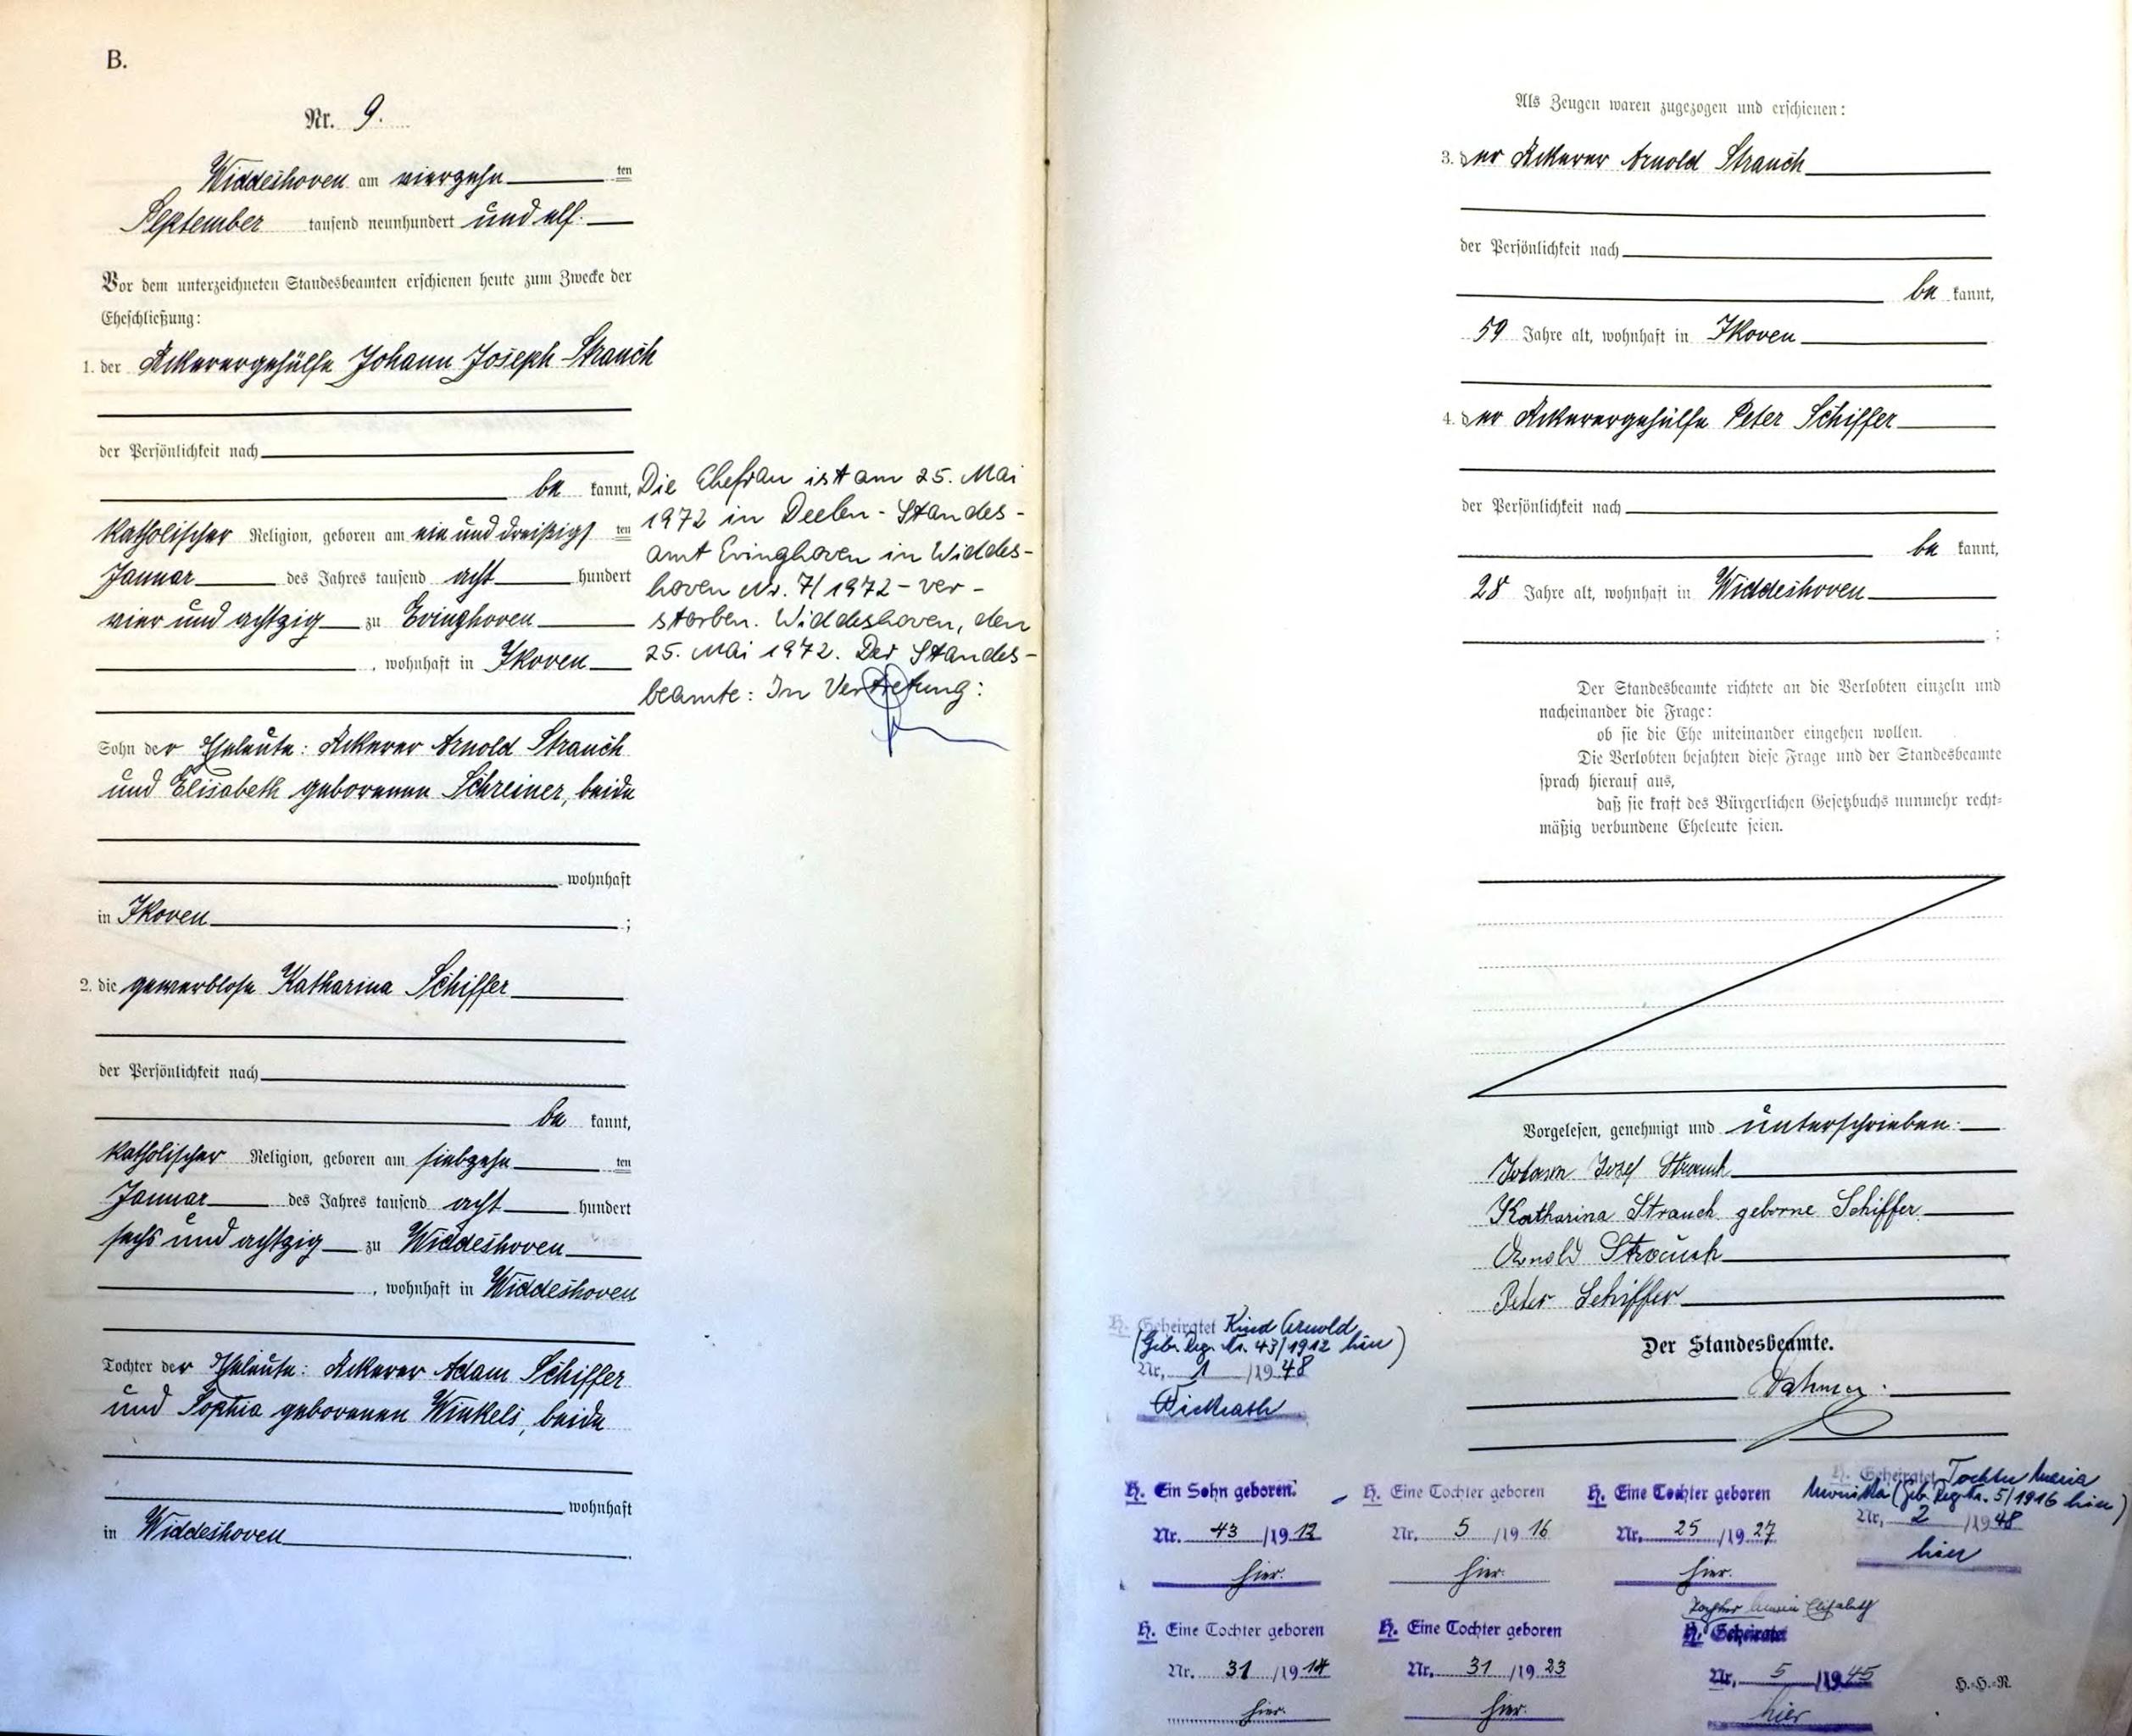 B.
Nr. 9.
Widdeshoven am vierzehn ten
September tausend neunhundert und elf.
Vor dem unterzeichneten Standesbeamten erschienen heute zum Zwecke der
Eheschließung:
1. der Ackerergehülfe Johann Joseph Strauch
der Persönlichkeit nach
be kannt,
katholischer Religion, geboren am ein und dreißigs ten
Januar des Jahres tausend acht hundert
vier und achtzig zu Evinghoven
, wohnhaft in Ikoven
Sohn der Eheleute: Ackerer Arnold Strauch
und Elisabeth geborenen Schreiner, beide
wohnhaft
in Ikoven ;
2. die gewerblose Katharina Schiffer
der Persönlichkeit nach
be kannt,
katholischer Religion, geboren am siebzehn ten
Januar des Jahres tausend acht hundert
sechs und achtzig zu Widdeshoven
, wohnhaft in Widdeshoven
Tochter der Eheleute: Ackerer Adam Schiffer
und Sophia geborenen Winkels, beide
wohnhaft
in Widdeshoven
Die Ehefrau ist am 25. Mai
1972 in Deelen - Standes-
amt Evinghoven in Widdes-
hoven Nr. 7/1972 - ver-
storben. Widdeshoven, den
25. Mai 1972. Der Standes-
beamte: In Vertretung:
Als Zeugen waren zugezogen und erschienen:
3. der Ackerer Arnold Strauch
der Persönlichkeit nach
be kannt,
59 Jahre alt, wohnhaft in Ikoven
4. der Ackerergehülfe Peter Schiffer
der Persönlichkeit nach
be kannt,
28 Jahre alt, wohnhaft in Widdeshoven
;
Der Standesbeamte richtete an die Verlobten einzeln und
nacheinander die Frage:
ob sie die Ehe miteinander eingehen wollen.
Die Verlobten bejahten diese Frage und der Standesbeamte
sprach hierauf aus,
daß sie kraft des Bürgerlichen Gesetzbuchs nunmehr recht-
mäßig verbundene Eheleute seien.
Vorgelesen, genehmigt und unterschrieben:
Johann Josef Strauch
Katharina Strauch geborne Schiffer
Arnold Strauch
Peter Schiffer
Der Standesbeamte.
H. Geheiratet Kind Arnold
(Geb. Reg. Nr. 43/1912 hier)
Nr. 1 /1948
H. Ein Sohn geboren.
Nr. 43 /1912
hier.
H. Eine Tochter geboren
Nr. 5 /1916
hier.
H. Eine Tochter geboren
Nr. 25 /1927
hier.
H. Geheiratet Tochter Maria
(Geb. Reg. Nr. 5/1916 hier)
Nr. 2 /1948
hier
H. Eine Tochter geboren
Nr. 31 /1914
hier.
H. Eine Tochter geboren
Nr. 31 /1923
hier.
Tochter Maria Elisabeth
H. Geheiratet
Nr. 5 /1945
hier
H.-H.-R.